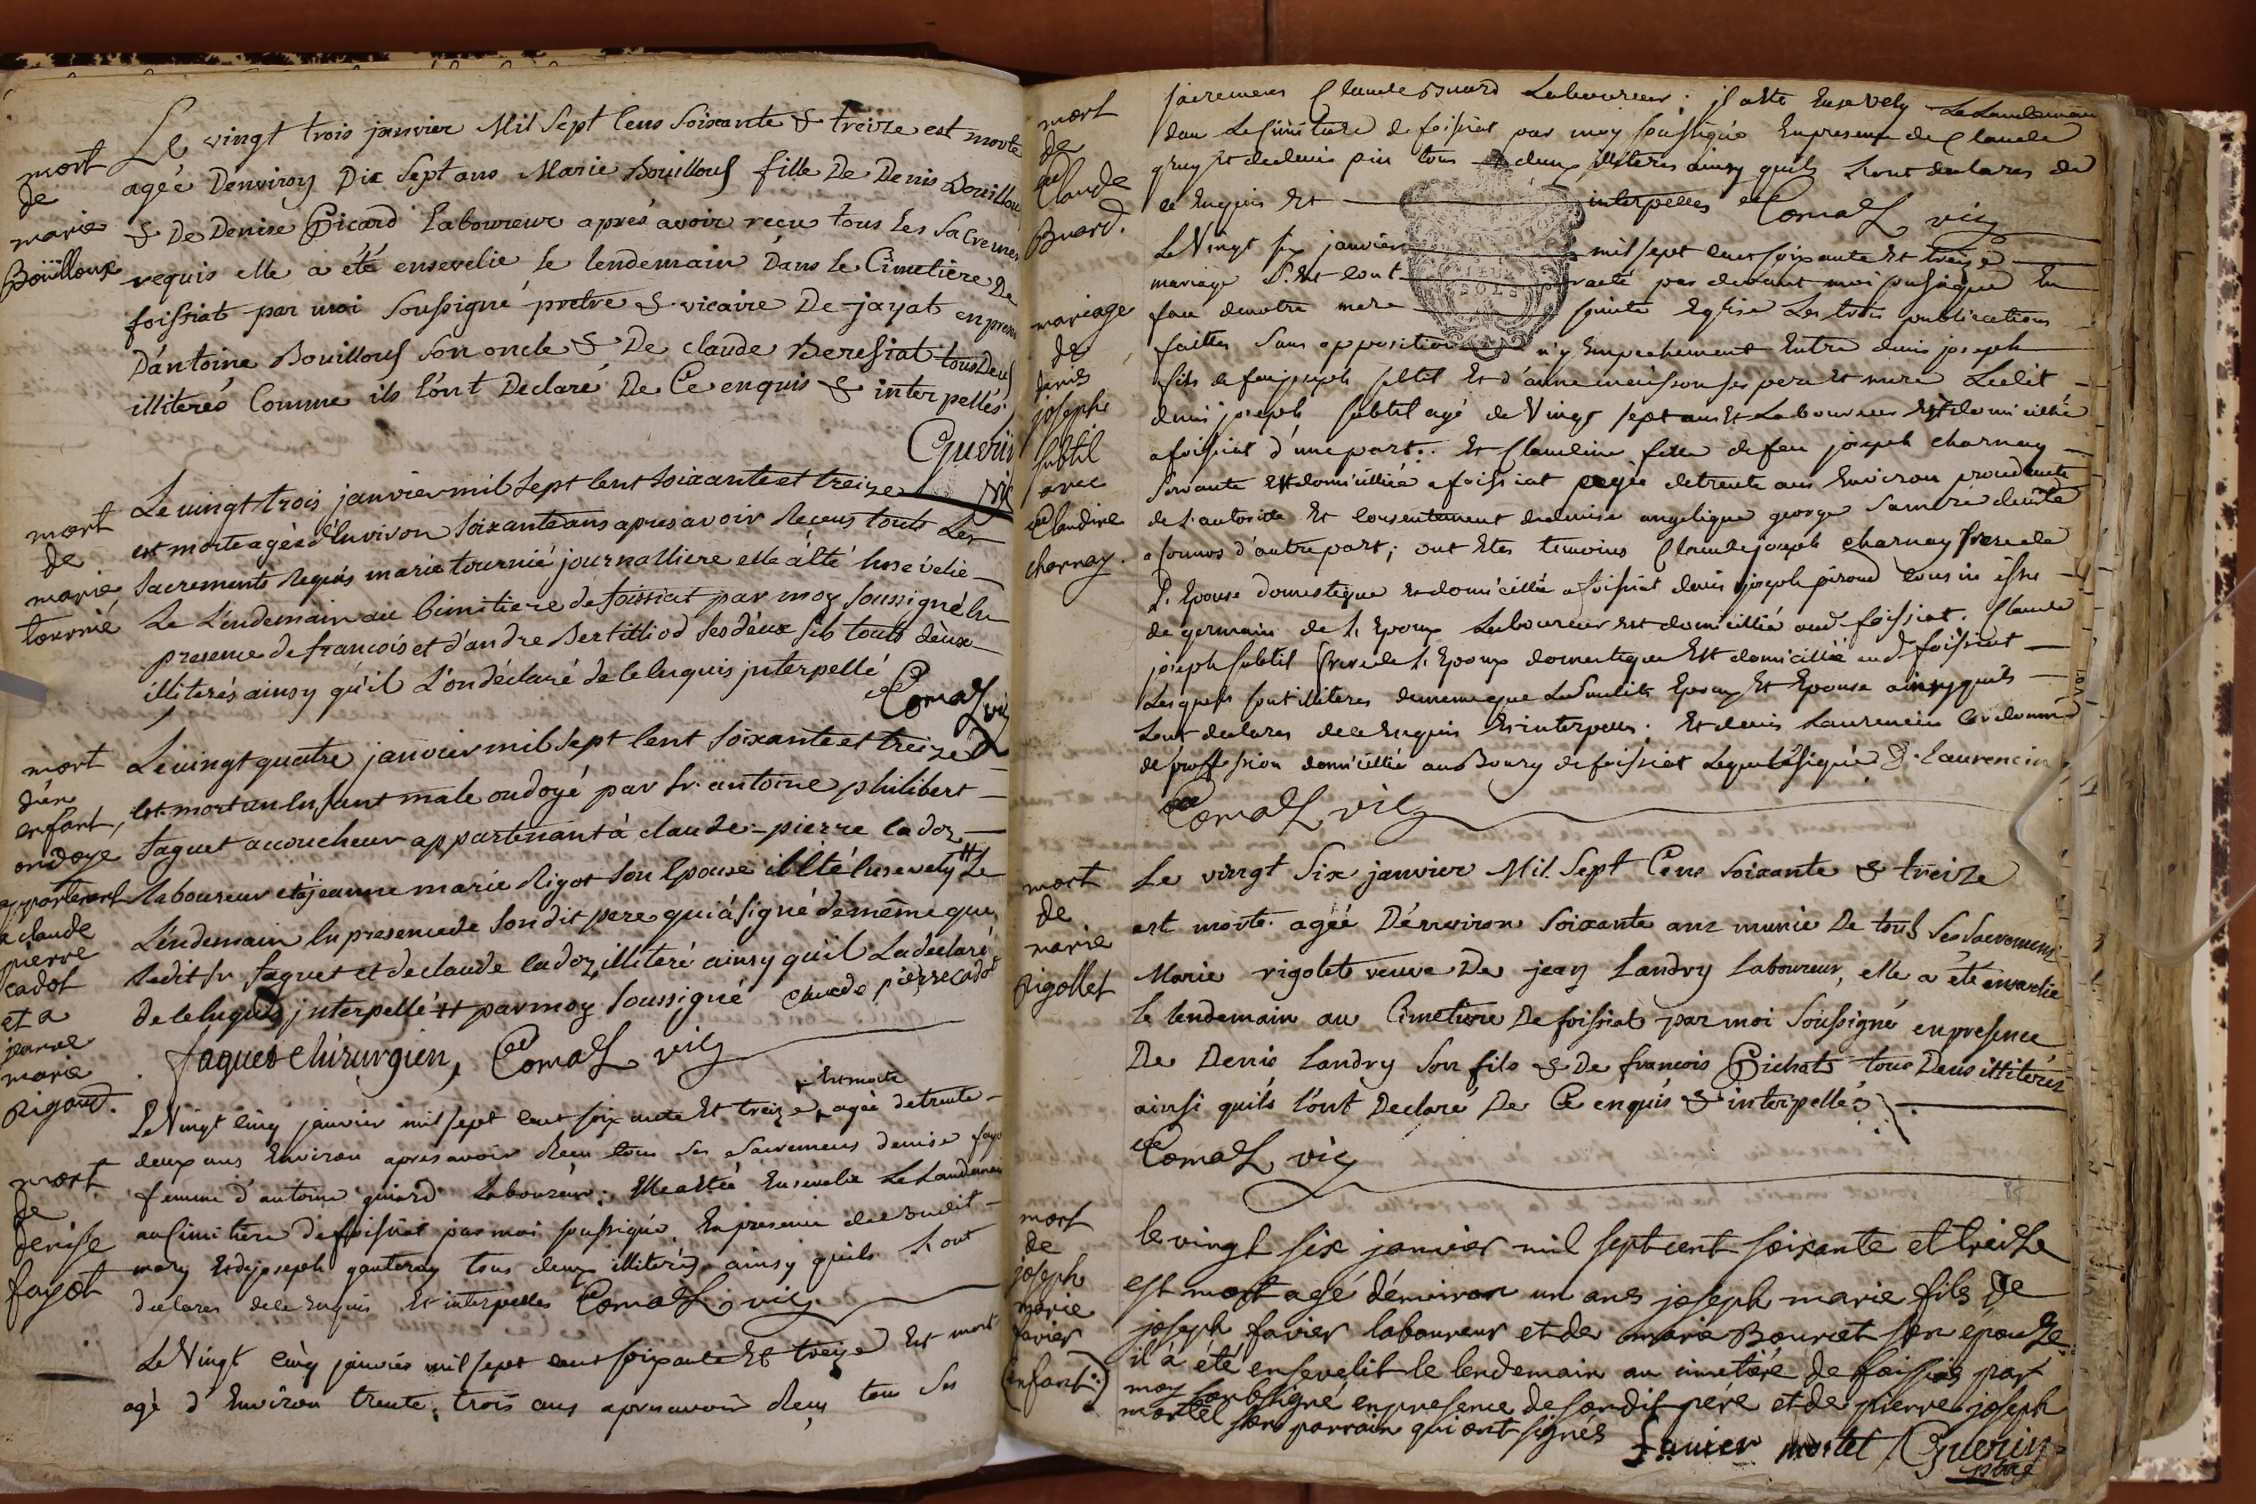 mort
de
marie
Boüilloux
Le vingt trois janvier Mil Sept Cens Soixante & treize est morte
agée D'environ Dix Sept ans Marie Bouilloux fille De Denis Bouilloux
& De Denise Picard Laboureur aprés avoir reçu tous Les Sacremens
requis elle a été ensevelie le lendemain Dans le Cimetiere De
foissiat par moi Soussigné pretre & vicaire De jayat en presence
D'antoine Bouilloux Son oncle & De claude Beresiat tous Deux
illiterés Comme ils l'ont Declaré De Ce enquis & interpellés
Guerin
vic
mort
de
marie
tournié
Le vingt trois janvier mil Sept Cent Soixante et treize
est morte agée d'Environ Soixante ans apres avoir Reçeus touts Les
Sacrements Requis marie tournié journalliere elle a été Ensévelie
Le Lendemain au Cimitiere de foissiat par moy Soussigné En
presence de françois et d'andre Bertilliod Ses déux fils touts déux
illiterés ainsy qu'il L'on déclaré de Ce Enquis jnterpellé
Comas vic
mort
d'un
enfant,
ondoye
appartenant
a claude
pierre
cadot
et a
jeanne
marie
Rigaud.
Le vingt quatre janvier mil Sept Cent Soixante et treize
Est mort un Enfant male ondoyé par Sr. antoine philibert
faguet accoucheur appartenant à claude-pierre Cadoz
Laboureur et à jeanne marie Rigot Son Epouse il Eté Ensevely # Le
Lendemain En presence de Son dit pere qui à Signé de même que
Ledit Sr faguet et de claude Cadoz illiteré ainsy qu'il La déclaré
de Ce Enquis jnterpellé # par moy Soussigné claude pierre Cadot
faguet chirurgien, Comas vic
mort
de
denise
fayot
Le Vingt Cinq janvier mil sept cent soixante Et treize + agée de trente
+ Est morte
deux ans Environ apres avoir Recu tous Ses Sacremens denise fayot
femme d'antoine guiard Laboureur: Elle a Etée Ensevelie Le Landemain
au Cimitiere de foissiat par moi soussigné. En presence de sudit
mary Et de joseph gauteray tous deux illiterés ainsy quils L'ont
declarés de Ce Enquis Et interpellés Comas vic.
Le Vingt Cinq janvier mil sept cent soixante Et treize Est mort
agé d'Environ trente trois ans apres avoir Reçu tous Ses
mort
de
Claude
Buard.
sacremens Claude Buard Laboureur; il a Eté Ensevely Le Landemain
dans Le Cimitiere de foissiat par moy soussigné En presence de Claude
gruy Et de denis pin tous deux illiteres ainsy quils L'ont declarés de
ce Enquis Et interpelles Comas vic
mariage
de
denis
joseph
subtil
avec
Claudine
charnay.
Le Vingt six janvier mil sept cent soixante Et treize
mariage S. Est contracté par devant moi soussigné En
face de notre mere sainte Eglise Les trois publications
faittes Sans opposition n'y Empechement Entre denis joseph
fils de feu joseph subtil Et d'anne ses pere Et mere Ledit
denis joseph subtil agé de Vingt sept ans Et Laboureur Et domicillié
a foissiat d'une part: Et Claudine fille de feu joseph charnay
servante Et domicilliée a foissiat agée de trente ans Environ procedante
de L'autorité Et consentement de denise angelique george Sa mere
a d'autre part; ont Etes temoins Claude joseph charnay frere de
L'Epouse domestique Et domicillié a foissiat denis joseph piroud cousin
de germain de L'Epoux Laboureur Et domicillié aud. foissiat. Claude
joseph subtil frere de L'Epoux domestique Et domicillié aud. foissiat
Lesquels sont illiteres de meme que Les susdits Epoux Et Epouse ainsy quils
Lont declares de Ce Enquis Et interpelles. Et denis Laurencin Cordonnier
de proffession domicillié au Bourg de foissiat Lequel a signé D. Laurencin
Comas vic
mort
de
marie
Rigollet
Le vingt Six janvier Mil Sept Cens Soixante & treize
est morte agée D'environ Soixante ans munie De tous Ses Sacremens
Marie rigolet veuve De jean Landry Laboureur, elle a été ensevelie
le lendemain au Cimetiere De foissiat par moi Soussigné en presence
De Denis Landry Son fils & De francois Pichat tous Deux illiterés
ainsi qu'ils l'ont Declaré De Ce enquis & interpellés
Comas vic
mort
de
joseph
marie
favier
(enfant)
le vingt six janvier mil sept cent soixante et treize
est mort agé d'environ un ans joseph marie fils de
joseph favier laboureur et de marie Bourcet son epouse
il à été ensevelit le lendemain au cimetiere de foissiat par
moy soubsigné en presence de son dit père et de pierre joseph
mortel son parrain qui ont signés favier mortel Guerin
ptre